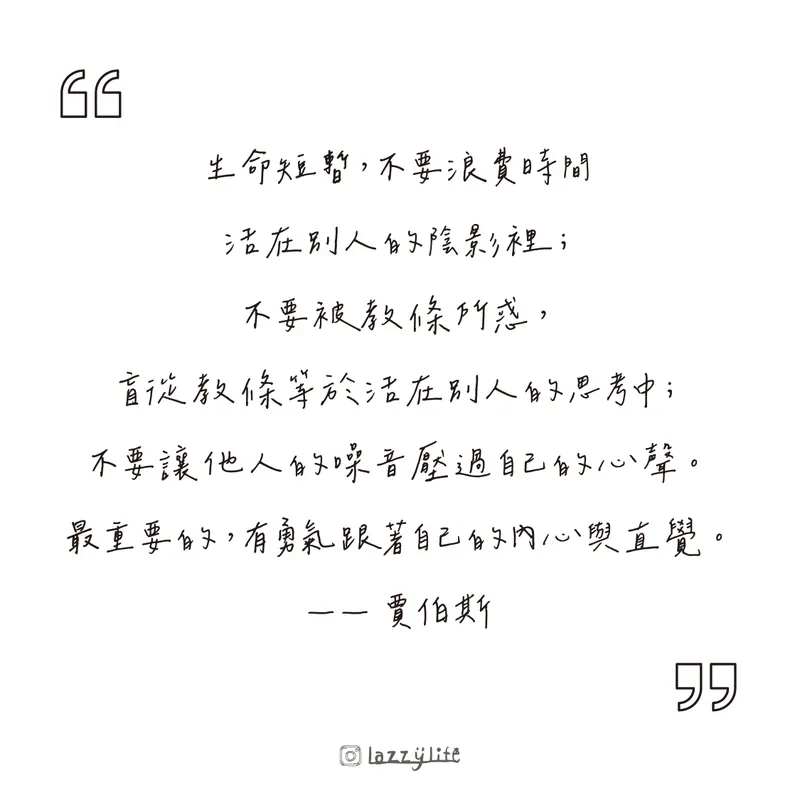 生命短暫，不要浪費時間
活在別人的陰影裡；
不要被教條所惑，
盲從教條等於活在別人的思考中；
不要讓他人的噪音壓過自己的心聲。
最重要的，有勇氣跟著自己的內心與直覺。
—— 賈伯斯
lazzylife